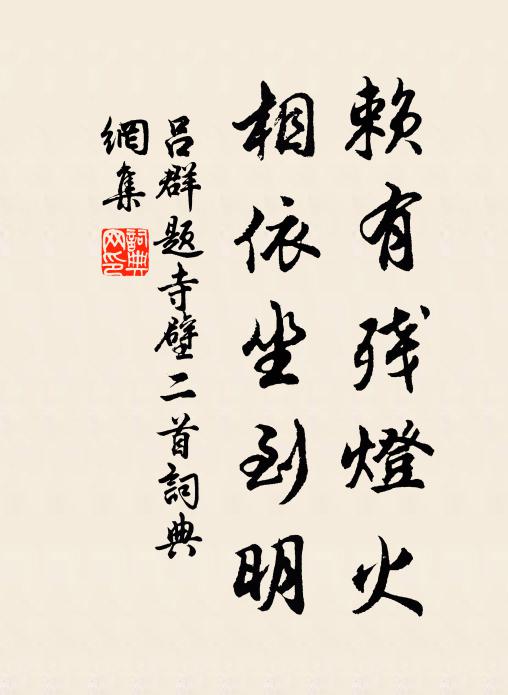 賴有残燈火
相依坐到明
吕群题寺壁二首詞典
網集
詞典
网印